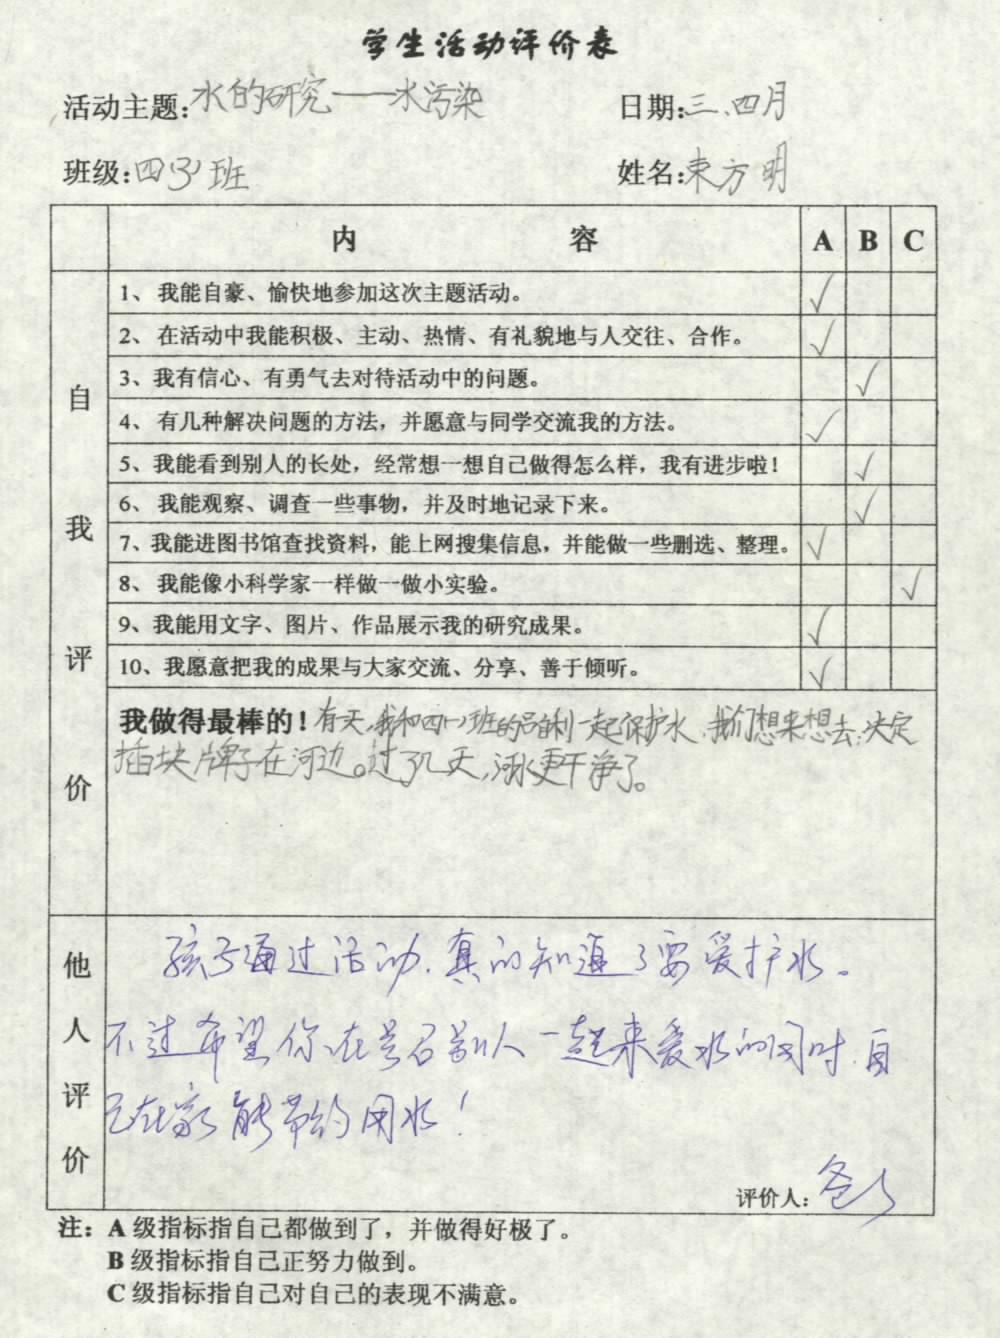 学生活动评价表
活动主题:水的研究——水污染 日期:三、四月
班级:四(3)班 姓名:束方明
内 容 A B C
自我评价
1、我能自豪、愉快地参加这次主题活动。 √
2、在活动中我能积极、主动、热情、有礼貌地与人交往、合作。 √
3、我有信心、有勇气去对待活动中的问题。 √
4、有几种解决问题的方法，并愿意与同学交流我的方法。 √
5、我能看到别人的长处，经常想一想自己做得怎么样，我有进步啦！ √
6、我能观察、调查一些事物，并及时地记录下来。 √
7、我能进图书馆查找资料，能上网搜集信息，并能做一些删选、整理。 √
8、我能像小科学家一样做一做小实验。 √
9、我能用文字、图片、作品展示我的研究成果。 √
10、我愿意把我的成果与大家交流、分享、善于倾听。 √
我做得最棒的！有天，我和四(1)班的一起保护水，我们想来想去，决定
插块牌子在河边。过了几天，河水更干净了。
他人评价
孩子通过活动，真的知道了要爱护水。
不过希望你在号召别人一起来爱水的同时，自
己在家能节约用水！
评价人：爸爸
注：A 级指标指自己都做到了，并做得好极了。
B 级指标指自己正努力做到。
C 级指标指自己对自己的表现不满意。